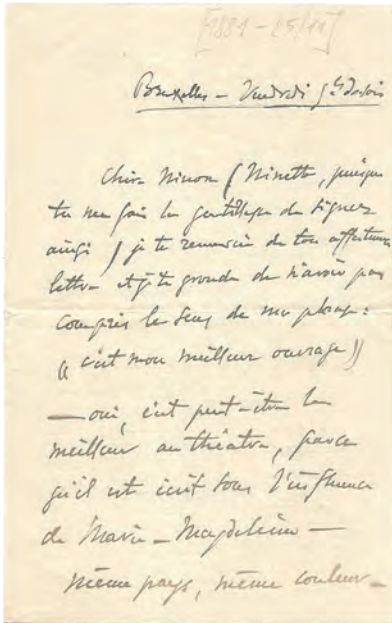 [1881 - 25/11]
Bruxelles – Vendredi 5h du soir
Chère Ninon (Ninette, puisque
tu me fais la gentillesse de signer
ainsi) je te remercie de ton affectueuse
lettre et je te gronde de n'avoir pas
compris le sens de ma phrase:
((c'est mon meilleur ouvrage))
— oui, c'est peut-être le
meilleur au théâtre, parce
qu'il est écrit sous l'influence
de Marie-Magdeleine —
même pays, même couleur –